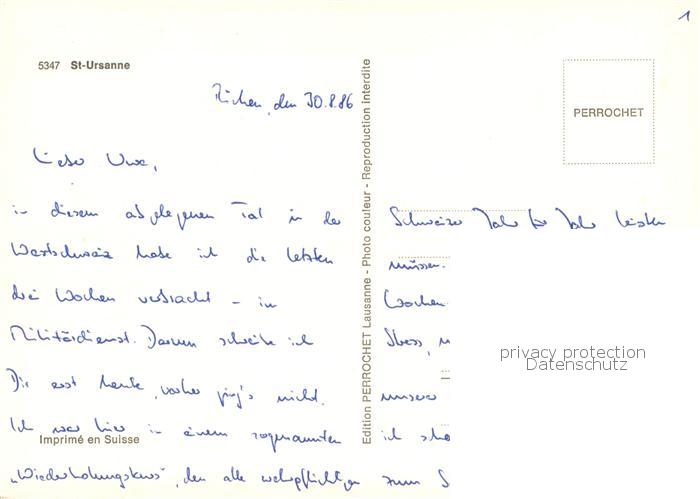 1
5347 St-Ursanne
Riehen, den 30.8.86
PERROCHET
Lieber Uwe,
in diesem abgelegenen Tal in der
Westschweiz habe ich die letzten
drei Wochen verbracht - im
Militärdienst. Darum schreibe ich
Dir erst heute, vorher ging's nicht.
Ich war hier in einem sogenannten
Imprimé en Suisse
"Wiederholungskurs", den alle wehrpflichtigen
Edition PERROCHET Lausanne - Photo couleur - Reproduction interdite
Schweizer Jahr für Jahr leisten
müssen.
Wochen
Stress,
unserer
ich
zum S
privacy protection
Datenschutz